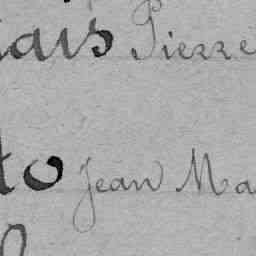 ais Pierre
to Jean Ma